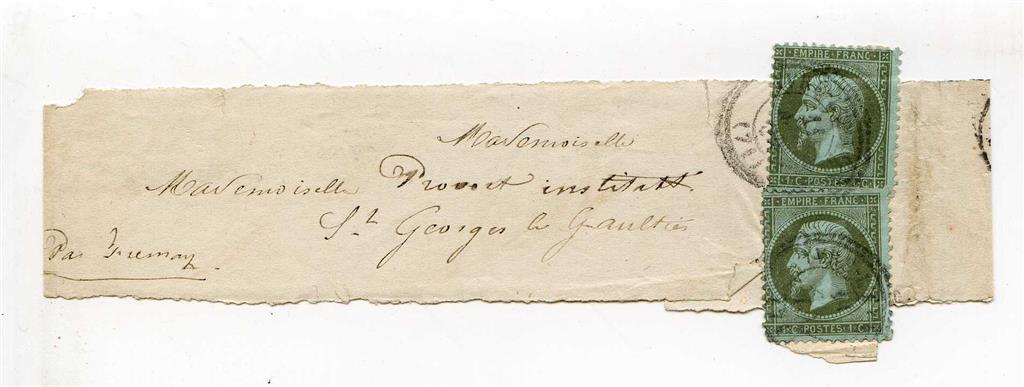 Mademoiselle
Mademoiselle Provost institutt
St Georges le Gaultier
Par Fresnay
EMPIRE FRANC
1 C POSTES 1 C
EMPIRE FRANC
1 C POSTES 1 C